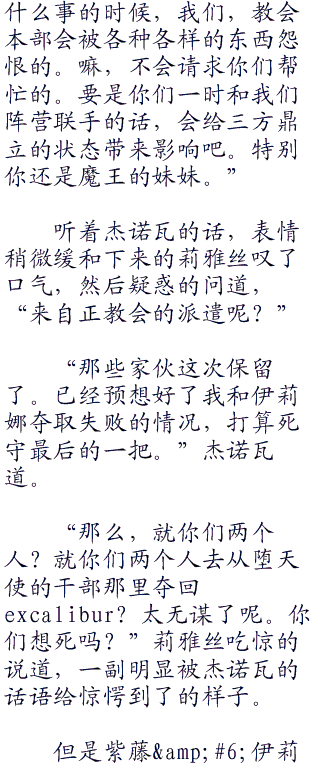 什么事的时候，我们，教会
本部会被各种各样的东西怨
恨的。嘛，不会请求你们帮
忙的。要是你们一时和我们
阵营联手的话，会给三方鼎
立的状态带来影响吧。特别
你还是魔王的妹妹。”
听着杰诺瓦的话，表情
稍微缓和下来的莉雅丝叹了
口气，然后疑惑的问道，
“来自正教会的派遣呢？”
“那些家伙这次保留
了。已经预想好了我和伊莉
娜夺取失败的情况，打算死
守最后的一把。”杰诺瓦
道。
“那么，就你们两个
人？就你们两个人去从堕天
使的干部那里夺回
excalibur？太无谋了呢。你
们想死吗？”莉雅丝吃惊的
说道，一副明显被杰诺瓦的
话语给惊愕到了的样子。
但是紫藤&amp;#6;伊莉